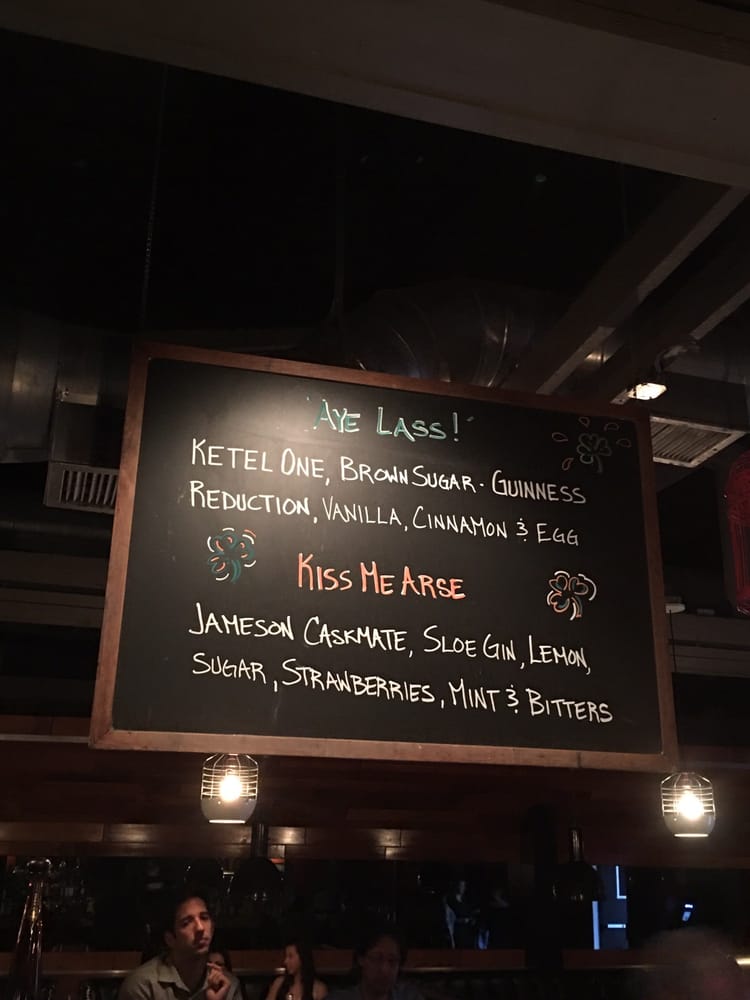 AYE LASS!
KETEL ONE, BROWN SUGAR - GUINNESS
REDUCTION, VANILLA, CINNAMON & EGG
KISS ME ARSE
JAMESON CASKMATE, SLOE GIN, LEMON,
SUGAR, STRAWBERRIES, MINT & BITTERS